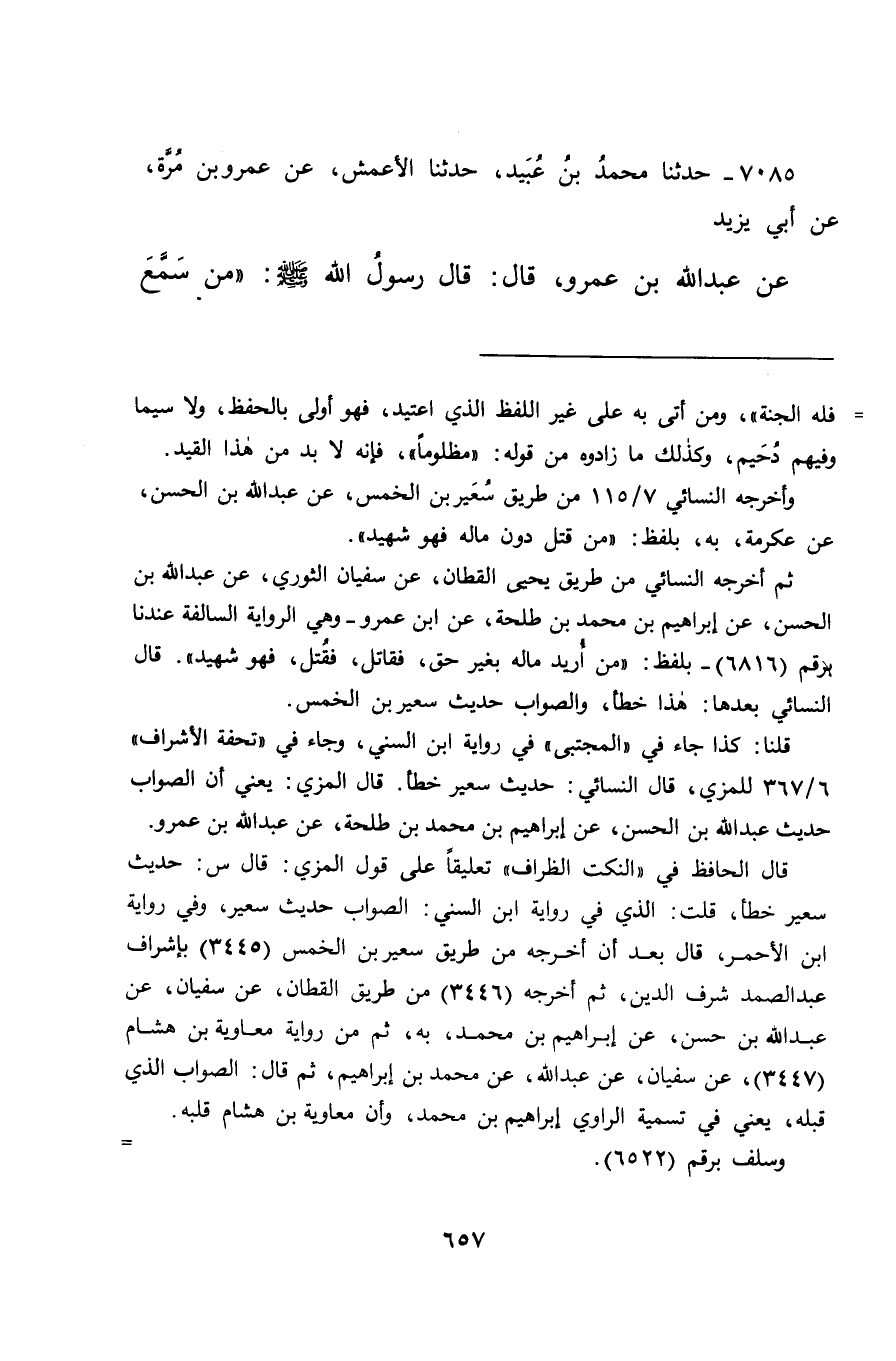 ٧٠٨٥ـ حدثنا محمدُ بنُ عُبَيد، حدثنا الأعمش، عن عمرو بن مُرَّة،
عن أبي يزيد
عن عبدالله بن عمرو، قال: قال رسولُ الله ﷺ: «من سَمَّعَ
= فله الجنة»، ومن أتى به على غير اللفظ الذي اعتيد، فهو أولى بالحفظ، ولا سيما
وفيهم دُحَيم، وكذٰلك ما زادوه من قوله: «مظلوماً»، فإنه لا بد من هٰذا القيد.
وأخرجه النسائي ١١٥/٧ من طريق سُعَير بن الخمس، عن عبدالله بن الحسن،
عن عكرمة، به، بلفظ: «من قتل دون ماله فهو شهيد».
ثم أخرجه النسائي من طريق يحيى القطان، عن سفيان الثوري، عن عبدالله بن
الحسن، عن إبراهيم بن محمد بن طلحة، عن ابن عمرو ـ وهي الرواية السالفة عندنا
برقم (٦٨١٦) ـ بلفظ: «من أُريد ماله بغير حق، فقاتل، فقُتل، فهو شهيد». قال
النسائي بعدها: هٰذا خطأ، والصواب حديث سعير بن الخمس.
قلنا: كذا جاء في «المجتبى» في رواية ابن السني، وجاء في «تحفة الأشراف»
٣٦٧/٦ للمزي، قال النسائي: حديث سعير خطأ. قال المزي: يعني أن الصواب
حديث عبدالله بن الحسن، عن إبراهيم بن محمد بن طلحة، عن عبدالله بن عمرو.
قال الحافظ في «النكت الظراف» تعليقاً على قول المزي: قال س: حديث
سعير خطأ، قلت: الذي في رواية ابن السني: الصواب حديث سعير، وفي رواية
ابن الأحمر، قال بعد أن أخرجه من طريق سعير بن الخمس (٣٤٤٥) بإشراف
عبدالصمد شرف الدين، ثم أخرجه (٣٤٤٦) من طريق القطان، عن سفيان، عن
عبدالله بن حسن، عن إبراهيم بن محمد، به، ثم من رواية معاوية بن هشام
(٣٤٤٧)، عن سفيان، عن عبدالله، عن محمد بن إبراهيم، ثم قال: الصواب الذي
قبله، يعني في تسمية الراوي إبراهيم بن محمد، وأن معاوية بن هشام قلبه.
وسلف برقم (٦٥٢٢). =
٦٥٧